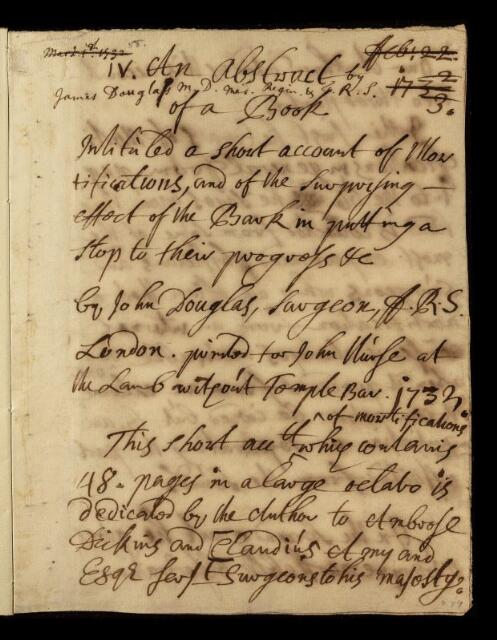 March 1st. 1732 55.
Feb: 22.
IV. An Abstract by
James Douglass M.D. Med. Regin. & F.R.S. 173 2/3.
of a Book
Intituled a short account of Mor
tifications, and of the surprising —
effect of the Bark in putting a
stop to their progress &c
by John Douglas, surgeon, F.R.S.
London. printed for John Nurse at
the Lamb without Temple Bar. 1732,
of mortifications
This short acctt which contains
48. pages in a large octavo is
dedicated by the Author to Ambrose
Dickins and Claudius Amyand
Esqr serjt surgeons to his majesty.